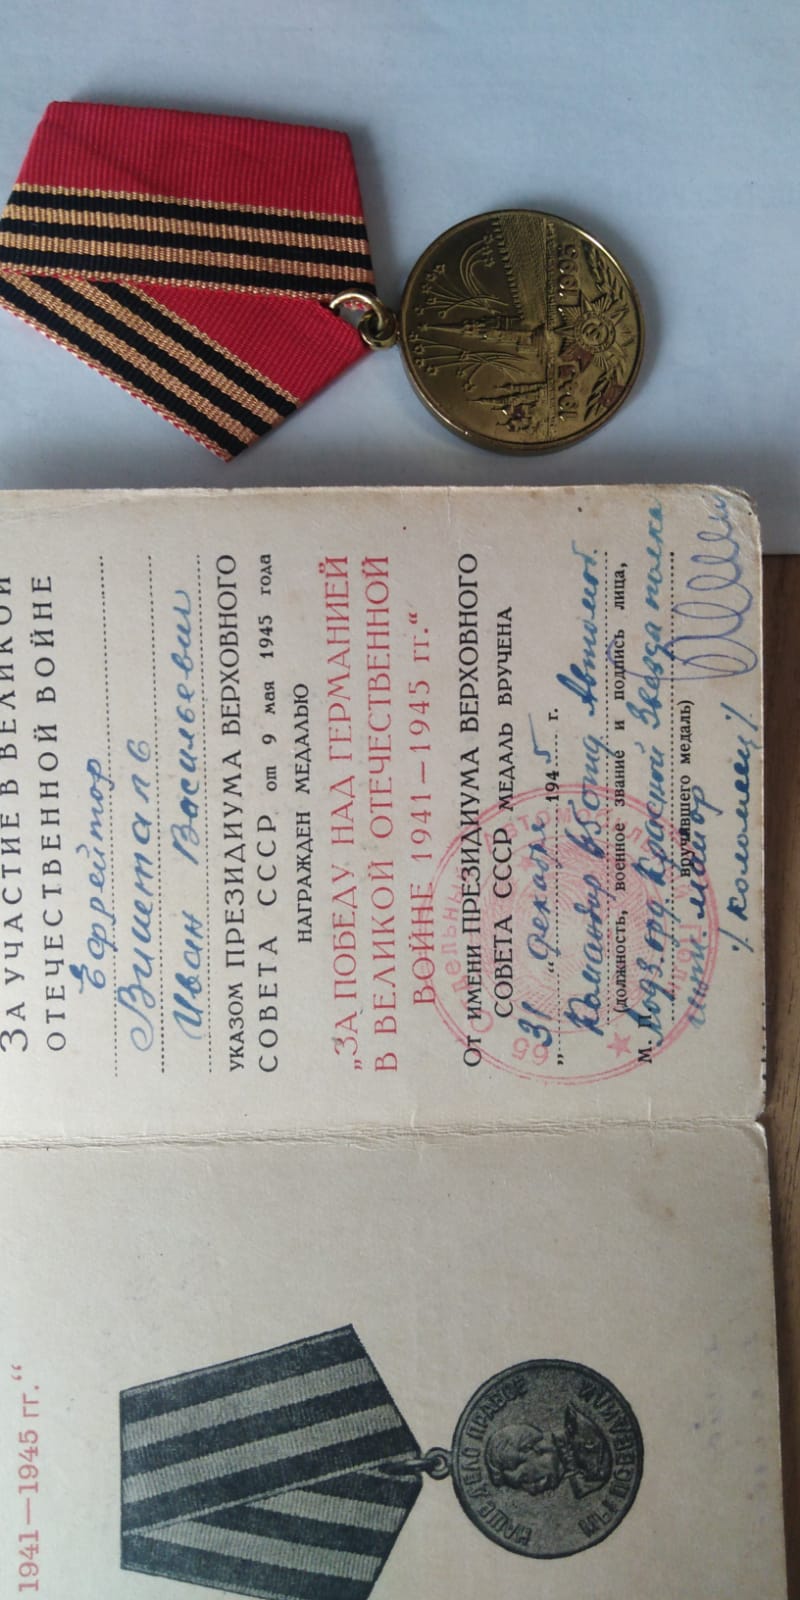 1941 1995
ЗА УЧАСТИЕ В ВЕЛИКОЙ
ОТЕЧЕСТВЕННОЙ ВОЙНЕ
Ефрейтор
Иван Васильевич
УКАЗОМ ПРЕЗИДИУМА ВЕРХОВНОГО
СОВЕТА СССР от 9 мая 1945 года
НАГРАЖДЕН МЕДАЛЬЮ
„ЗА ПОБЕДУ НАД ГЕРМАНИЕЙ
В ВЕЛИКОЙ ОТЕЧЕСТВЕННОЙ
ВОЙНЕ 1941—1945 гг.“
ОТ ИМЕНИ ПРЕЗИДИУМА ВЕРХОВНОГО
СОВЕТА СССР МЕДАЛЬ ВРУЧЕНА
„31“ декабря 1945 г.
Командир 65 отд. Автомоб.
(должность, военное звание и подпись лица,
М. П. подз. орд. Красной Звезды полка
вручившего медаль)
инж. майор
/Коломеец/
1941—1945 гг.“
НАШЕ ДЕЛО ПРАВОЕ
МЫ ПОБЕДИЛИ